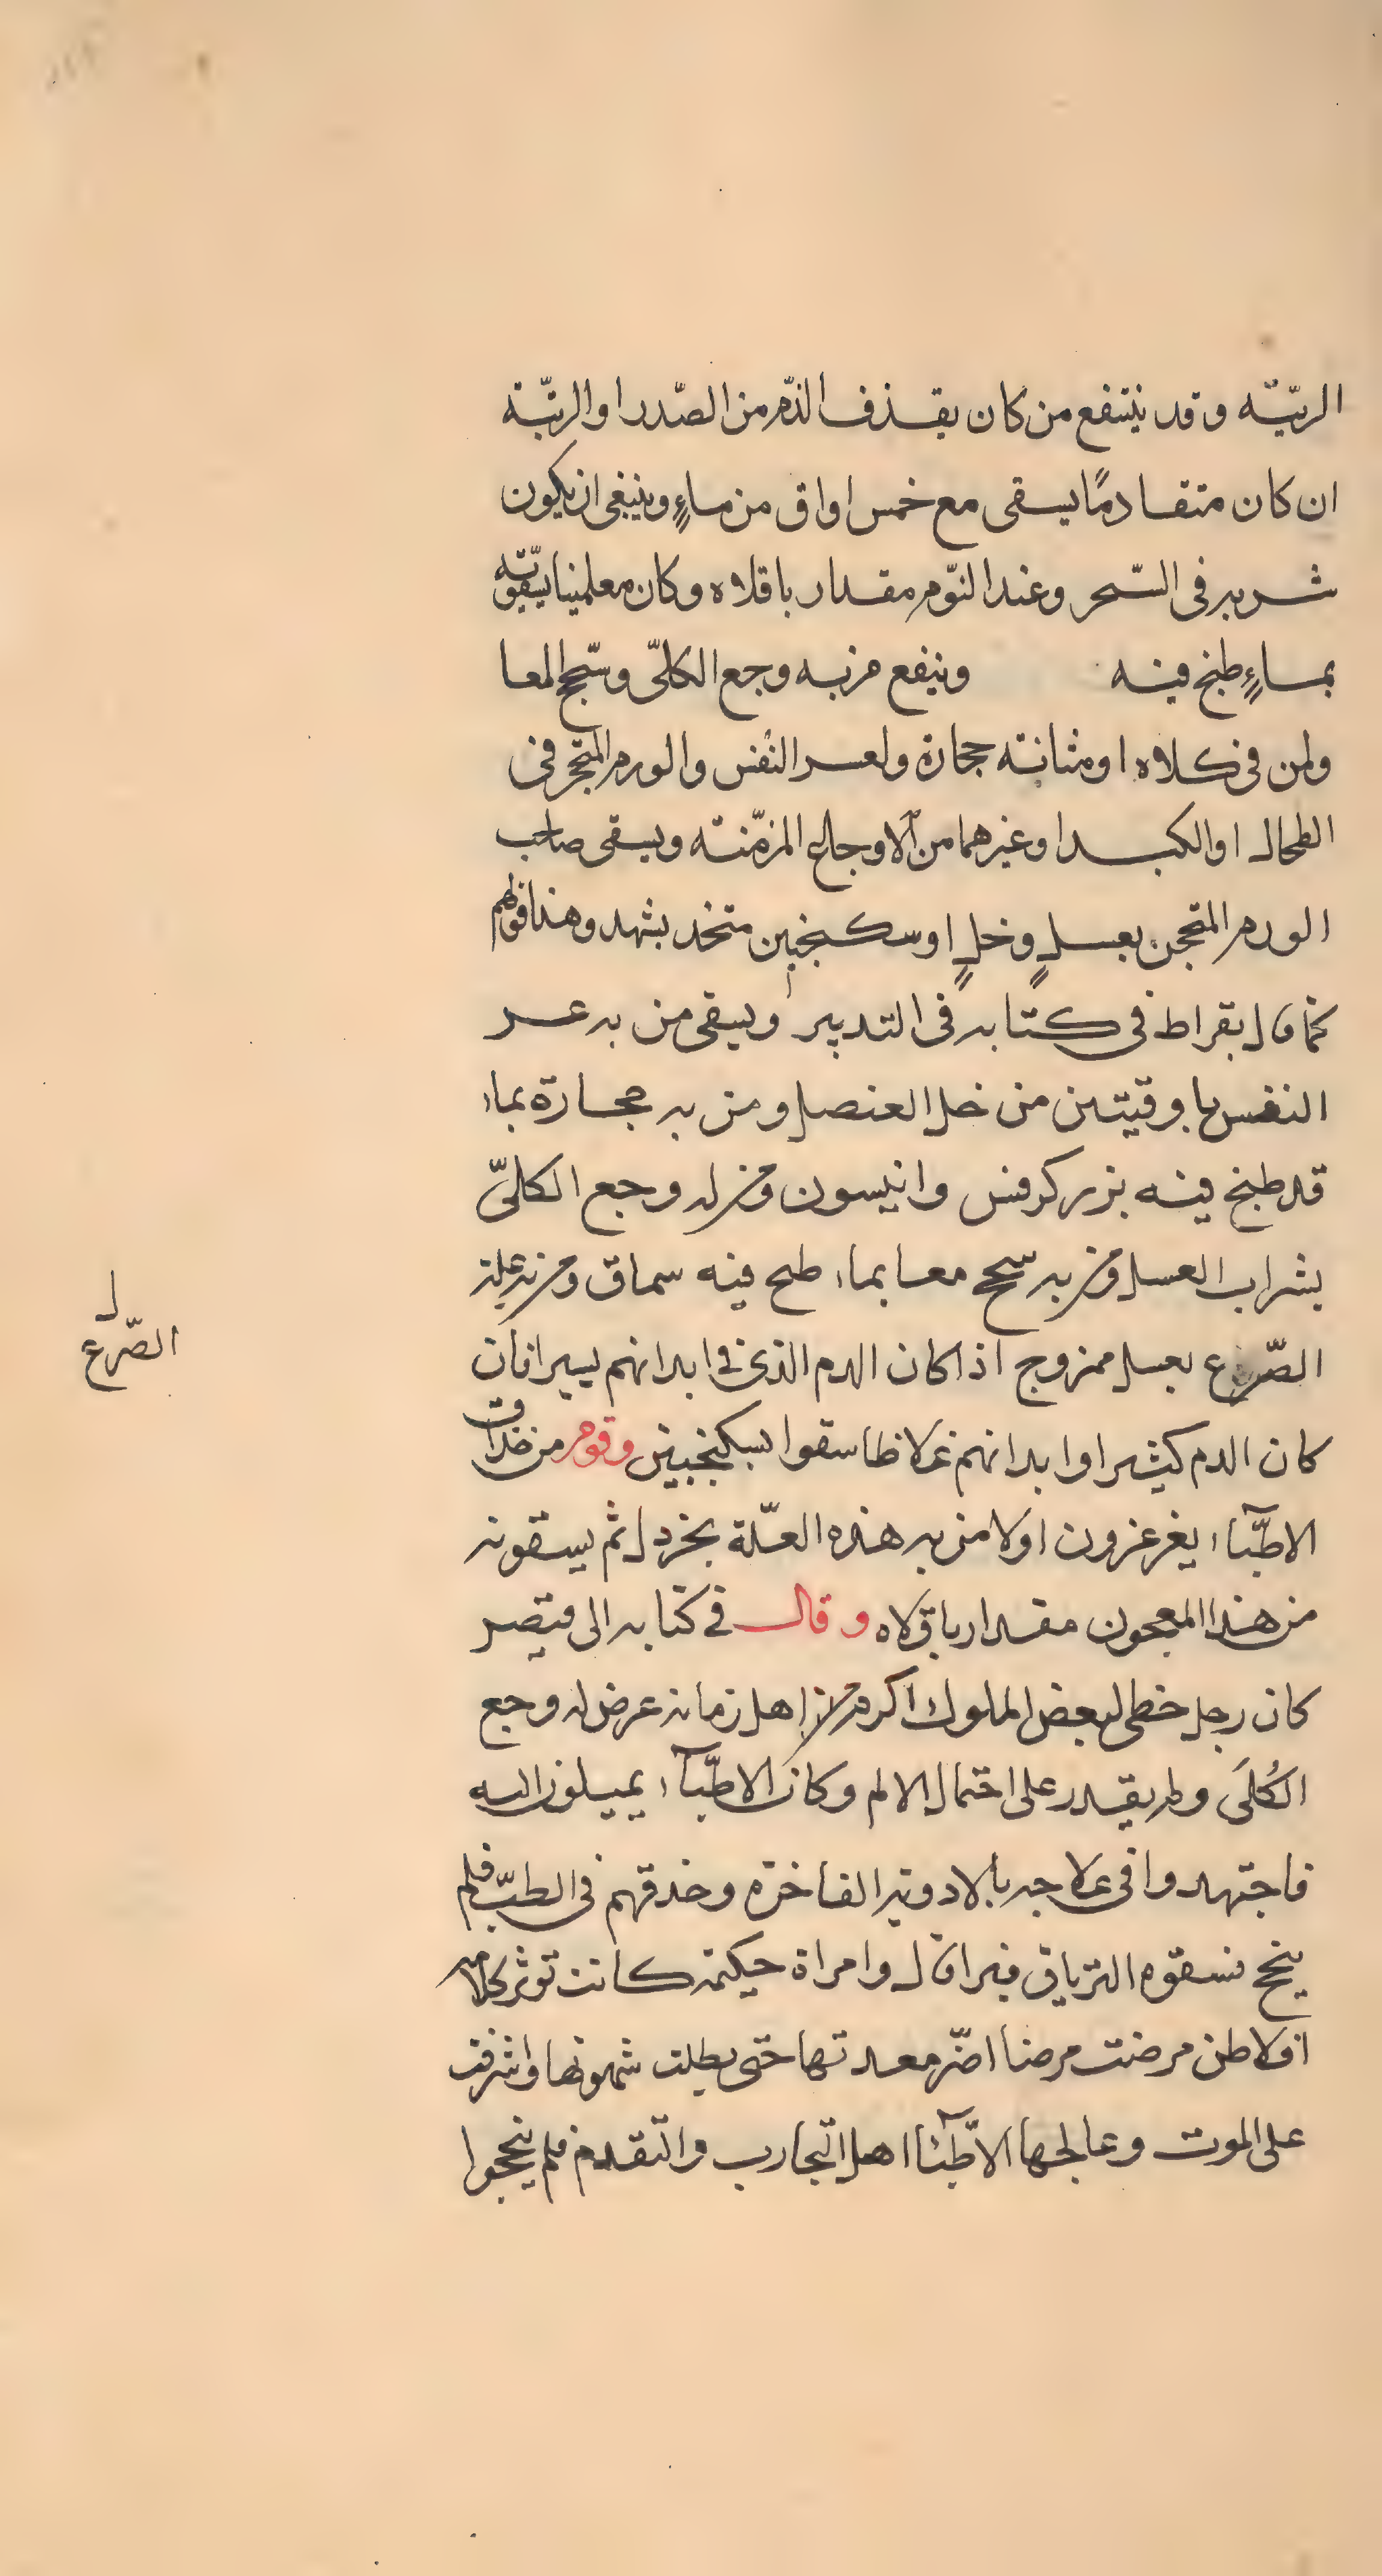 الريّة وقد ينتفع من كان يقذف الدّم من الصّدر او الريّة
ان كان متقادمًا يسقى مع خمس اواق من ماءٍ وينبغى ان يكون
شربه فى السّحر وعند النّوم مقدار باقلاه وكان معلمينا
بماءٍ طبخ فيه وينفع من به وجع الكلىّ وسحج المعا
ولمن فى كلاه او مثانته حجارة ولعسر النفس والورم المتحجر فى
الطحال او الكبد او غيرهما من الاوجاع المزمّنة ويسقى صاحب
الورم المتحجر بعسلٍ وخلٍ او سكنجبين متخذ بشهد وهذا
كما قال بقراط فى كتابه فى التدبير ويسقى من به عسر
النفس باوقيتين من خل العنصل ومن به حجارة بماء
قد طبخ فيه بزر كرفس وانيسون ومن به وجع الكلىّ
بشراب العسل ومن به سحج معا بماء طبخ فيه سماق ومن به علة
الصّرع بعسل ممزوج اذا كان الدم الذى فى ابدانهم يسيرا فان
كان الدم كثيرا وابدانهم غلاظا سقوا بسكنجبين وقوم من حذاق
الاطبّاء يغرغرون اولا من به هذه العلّة بخردل ثم يسقونه
من هذا المعجون مقدار باقلاه وقال فى كتابه الى قيصر
كان رجل خطى لبعض الملوك اكرم من اهل زمانه عرض له وجع
الكُلَى ولم يقدر على احتمال الالم وكان الاطبّاء يميلون اليه
فاجتهدوا فى علاجه بالادوية الفاخرة وحذقهم فى الطبّ فلم
ينجح فسقوه الترياق فبرا قال وامراة حكيمة كانت توثر كلام
افلاطن مرضت مرضا اضّر معدتها حتى بطلت شهوتها واشرفت
على الموت وعالجها الاطّباء اهل التجارب والتقدم فلم ينجحوا
ل
الصّرع